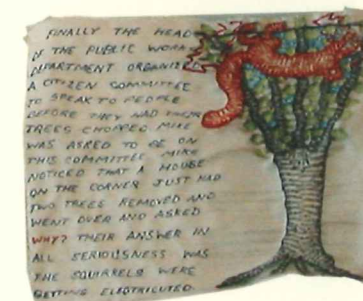 FINALLY THE HEAD
OF THE PUBLIC WORKS
DEPARTMENT ORGANIZED
A CITIZEN COMMITTEE
TO SPEAK TO PEOPLE
BEFORE THEY HAD THEIR
TREES CHOPPED MIKE
WAS ASKED TO BE ON
THIS COMMITTEE. MIKE
NOTICED THAT A HOUSE
ON THE CORNER JUST HAD
TWO TREES REMOVED AND
WENT OVER AND ASKED
WHY? THEIR ANSWER IN
ALL SERIOUSNESS WAS
THE SQUIRRELS WERE
GETTING ELECTRICUTED